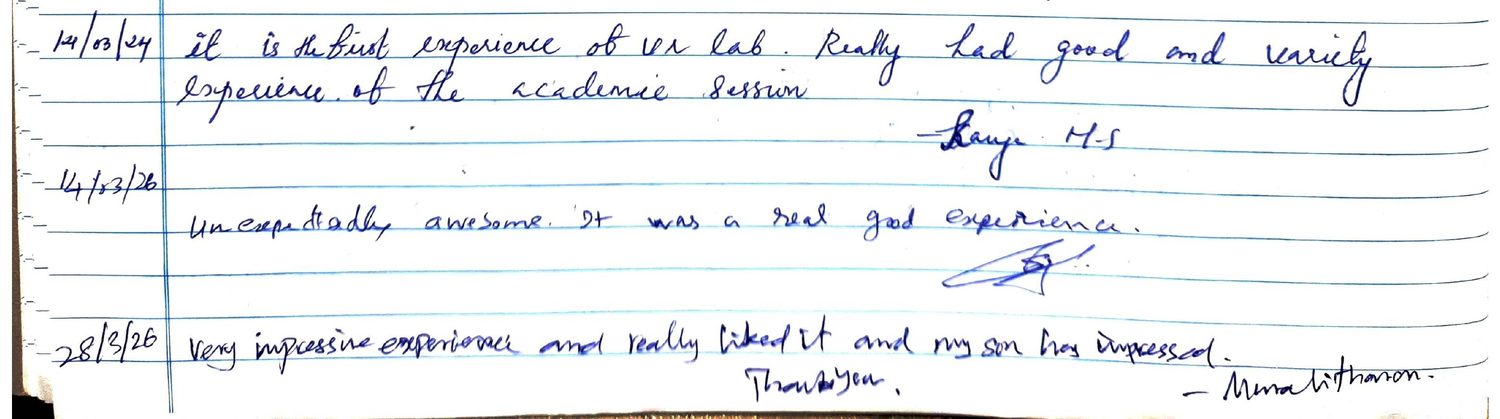 14/03/24 it is the first experience of VR lab. Really had good and variety
experience. of the academic session
M-S
14/03/26
Unexpectadly awesome. It was a real good experience.
28/3/26 Very impressive experience and really liked it and my son has impressed.
Thankyou. - Muralitharan.